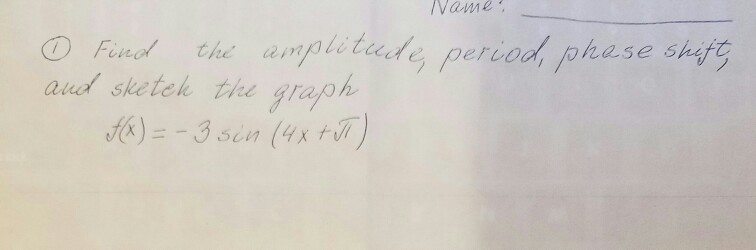 Name:
① Find the amplitude, period, phase shift,
and sketch the graph
f(x) = - 3 sin (4x + π)